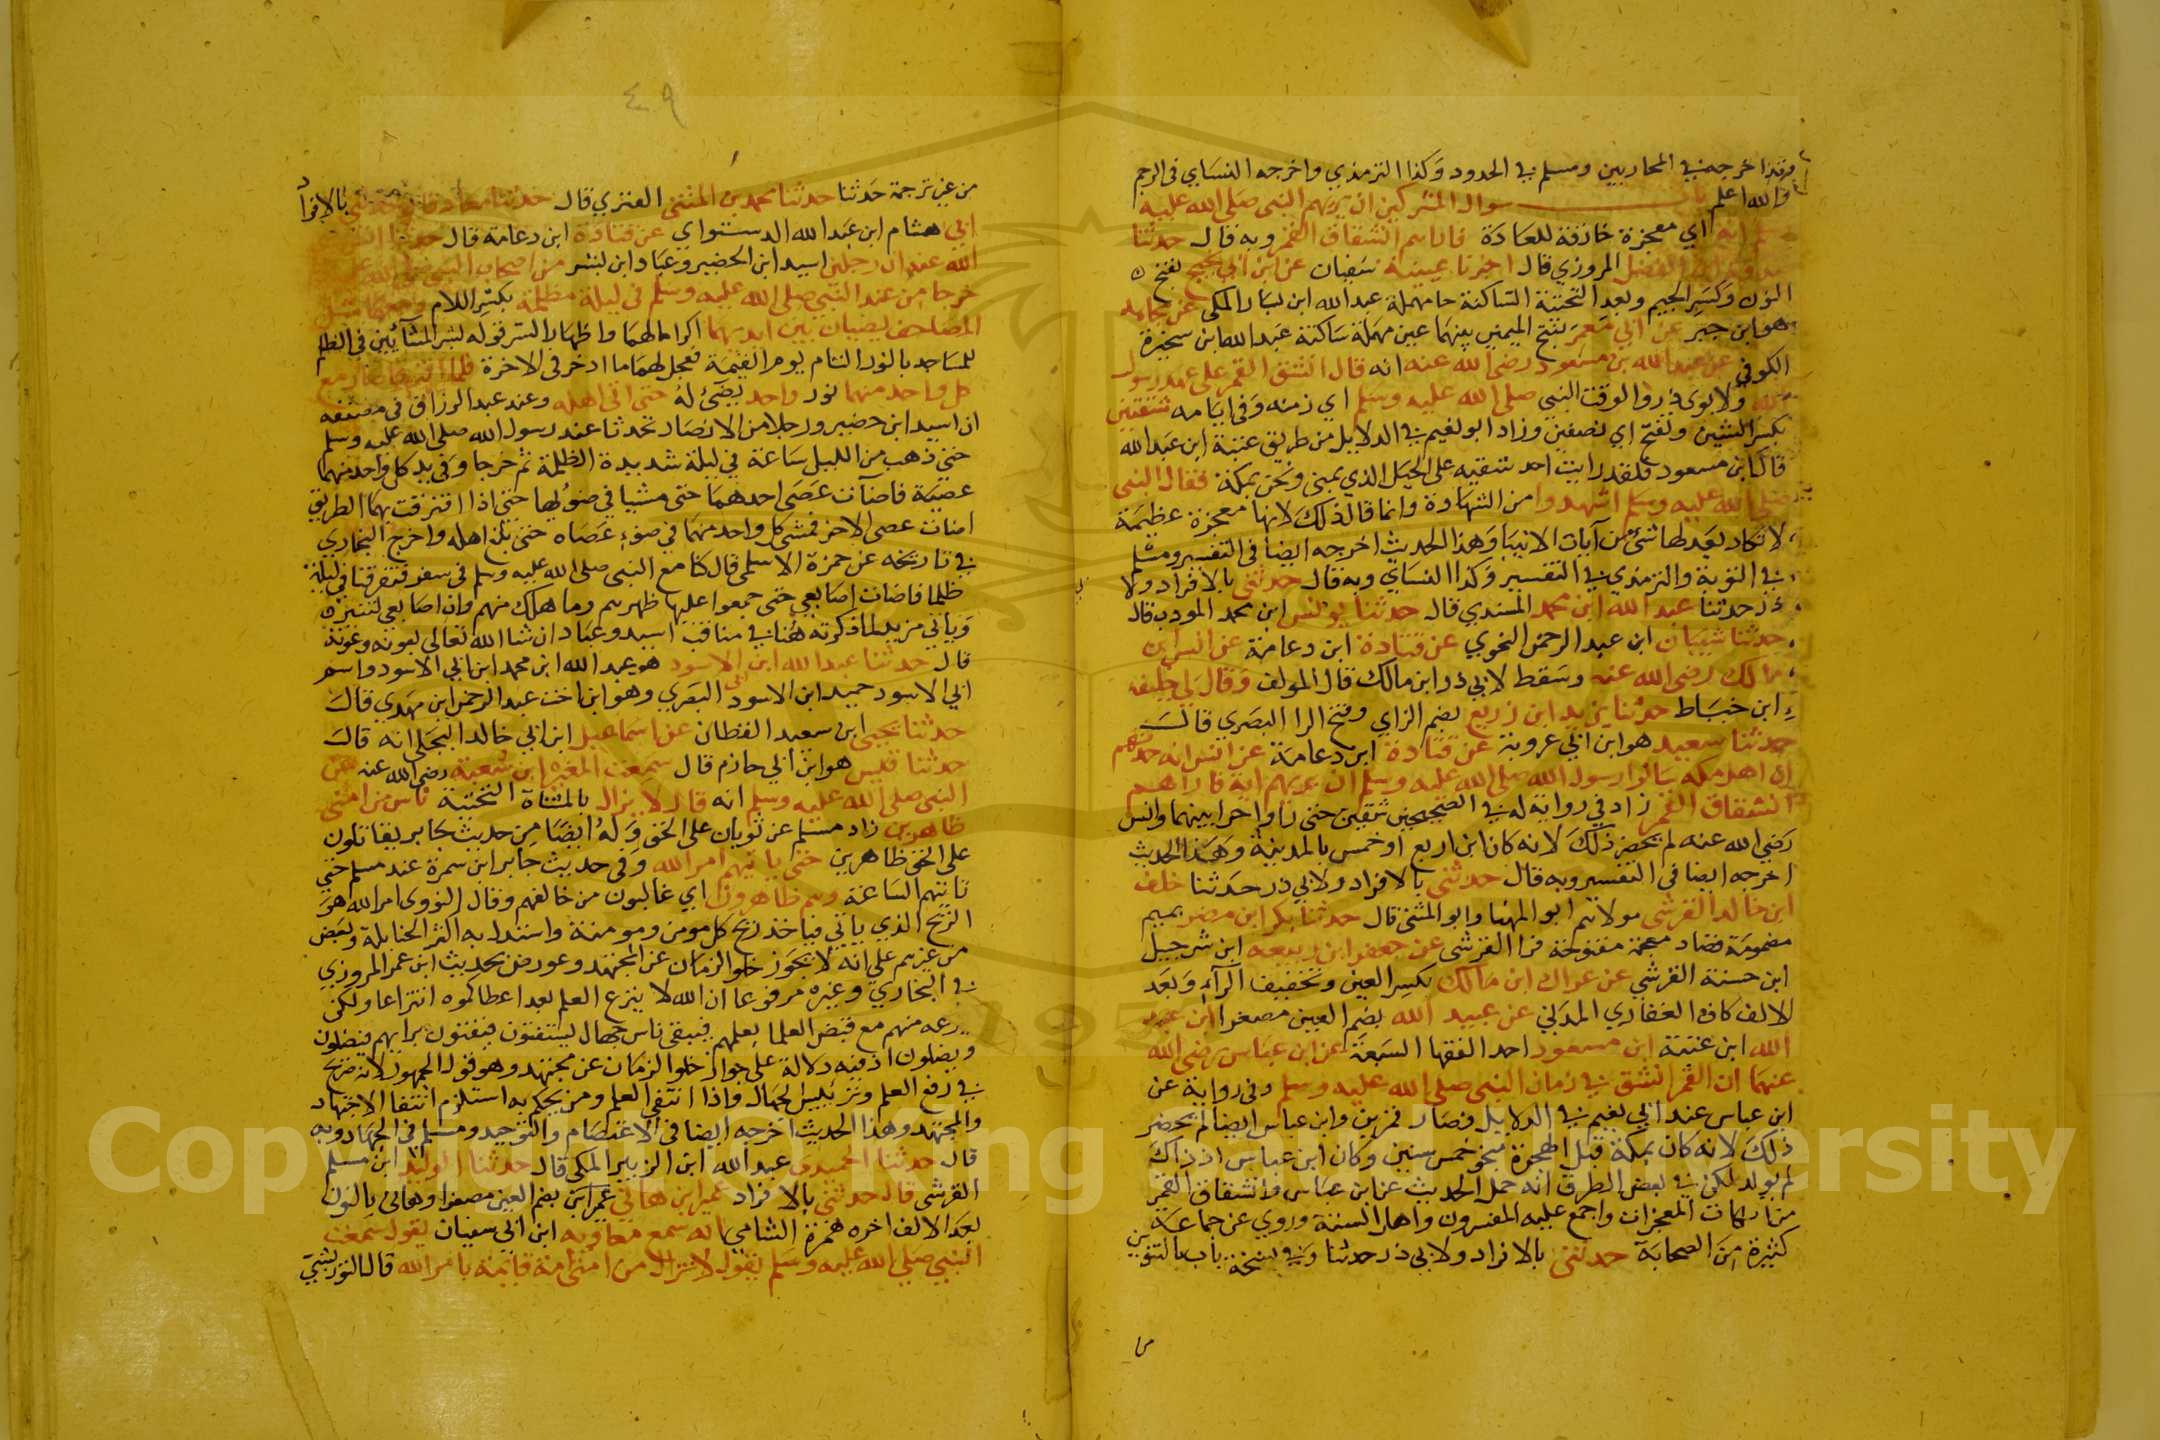 وقد اخرجه في المحاربين ومسلم في الحدود وكذا الترمذي واخرجه النساي في الرجم
والله اعلم باب سوال المشركين ان يريهم النبي صلى الله عليه
اية اي معجزة خارقة للعادة فاراهم انشقاق القمر وبه قال حدثنا
ابن الفضل المروزي قال اخبرنا عيينة سفيان عن ابن ابي نجيح بفتح
النون وكسر الجيم وبعد التحتية الساكنة حا مهملة عبد الله ابن يسار المكي عن مجاهد
هو ابن جبر عن ابي معمر بفتح الميمين بينهما عين مهملة ساكنة عبد الله ابن سخبرة
الكوفي عن عبد الله بن مسعود رضي الله عنه انه قال انشق القمر على عهد رسول
الله ولابوى ذر والوقت النبي صلى الله عليه وسلم اي زمنه وفي ايامه شقتين
بكسر الشين وتفتح اي نصفين وزاد ابو نعيم في الدلايل من طريق عتبة ابن عبد الله
قال ابن مسعود فلقد رايت احد شقيه على الجبل الذي بمنى ونحن بمكة فقال النبي
صلى الله عليه وسلم اشهدوا من الشهادة وانما قال ذلك لانها معجزة عظيمة
لا تكاد يعدلها شئ من آيات الانبيا وهذا الحديث اخرجه ايضا في التفسير ومسلم
في التوبة والترمذي في التفسير وكذا النساي وبه قال حدثني بالافراد ولا
ذر حدثنا عبد الله ابن محمد المسندي قال حدثنا يونس ابن محمد المودب قال
حدثنا شيبان ابن عبد الرحمن النحوي عن قتادة ابن دعامة عن انس ابن
مالك رضي الله عنه وسقط لابي ذر ابن مالك قال المولف وقال لي خليفه
ابن خياط حدثنا يزيد ابن زريع بضم الزاي وفتح الرا البصري قال
حدثنا سعيد هو ابن ابي عروبة عن قتادة ابن دعامة عن انس انه حدثهم
ان اهل مكه سالوا رسول الله صلى الله عليه وسلم ان يريهم اية فاراهم
انشقاق القمر زاد في رواية له في الصحيحين شقين حتى راوا حرا بينهما وانس
رضي الله عنه لم يحضر ذلك لانه كان ابن اربع او خمس بالمدينة وهذا الحديث
اخرجه ايضا في التفسير وبه قال حدثني بالافراد ولابي ذر حدثنا خلف
ابن خالد القرشي مولاهم ابو المهنا وابو المثنى قال حدثنا بكر ابن مضر بميم
مضمومة فضاد معجمة مفتوحة فرا القرشي عن جعفر ابن ربيعه ابن شرحبيل
ابن حسنة القرشي عن عراك ابن مالك بكسر العين وتخفيف الرآء وبعد
الالف كاف الغفاري المدني عن عبيد الله بضم العين مصغرا ابن عبد
الله ابن عتبة ابن مسعود احد الفقها السبعة عن ابن عباس رضي الله
عنهما ان القمر انشق في زمان النبي صلى الله عليه وسلم وفي رواية عن
ابن عباس عند ابي نعيم في الدلايل فصار قمرين وابن عباس ايضا لم يحضر
ذلك لانه كان بمكة قبل الهجرة بنحو خمس سنين وكان ابن عباس اذ ذاك
لم يولد لكن في بعض الطرق انه حمل الحديث عن ابن عباس وانشقاق القمر
من امهات المعجزات واجمع عليه المفسرون واهل السنة وروي عن جماعة
كثيرة من الصحابة حدثني بالافراد ولابي ذر حدثنا وفي نسخة باب بالتنوين
من
٤٩
من غير ترجمة حدثنا حدثنا محمد بن المثنى العنزي قال حدثنا معاذ قال حدثني بالافراد
ابي هشام ابن عبد الله الدستواي عن قتادة ابن دعامة قال حدثنا انس
الله عنه ان رجلين اسيد ابن الحضير وعباد ابن بشر من اصحاب النبي صلى الله عليه
خرجا من عند النبي صلى الله عليه وسلم في ليلة مظلمة بكسر اللام ومعهما مثل
المصباحين يضيان بين ايديهما اكراما لهما واظهارا لسر قوله بشر المشآيين في الظلم
للمساجد بالنور التام يوم القيمة فعجل لهما مما ادخر في الاخرة فلما افترقا صار مع
كل واحد منهما نور واحد يضئ له حتى اتى اهله وعند عبد الرزاق في مصنفه
ان اسيد ابن حضير ورجلا من الانصار تحدثا عند رسول الله صلى الله عليه وسلم
حتى ذهب من الليل ساعة في ليلة شديدة الظلمة ثم خرجا وفي يد كل واحد منهما
عصية فاضآت عصى احدهما حتى مشيا في ضوئها حتى اذا افترقت بهما الطريق
اضات عصى الاخر فمشى كل واحد منهما في ضوء عصاه حتى بلغ اهله واخرج البخاري
في تاريخه عن حمزة الاسلمي قال كنا مع النبي صلى الله عليه وسلم في سفر فتفرقنا في ليلة
ظلما فاضات اصابعي حتى جمعوا عليها ظهرهم وما هلك منهم وان اصابعي لتنير
وياتي مزيد لما ذكرته هنا في مناقب اسيد وعباد ان شا الله تعالى بعونه وقوته
قال حدثنا عبد الله ابن ابي الاسود هو عبد الله ابن محمد ابن ابي الاسود واسم
ابي الاسود حميد ابن الاسود البصري وهو ابن اخت عبد الرحمن ابن مهدي قال
حدثنا يحيى ابن سعيد القطان عن اسماعيل ابن ابي خالد البجلي انه قال
حدثنا قيس هو ابن ابي حازم قال سمعت المغيرة ابن شعبة رضي الله عنه عن
النبي صلى الله عليه وسلم انه قال لا يزال بالمثناة التحتية ناس من امتي
ظاهرين زاد مسلم عن ثوبان على الحق وله ايضا من حديث جابر يقاتلون
على الحق ظاهرين حتى ياتيهم امر الله وفي حديث جابر ابن سمرة عند مسلم حتى
تاتيهم الساعة وهم ظاهرون اي غالبون من خالفهم وقال النووي امر الله هو
الريح الذي ياتي فياخذ روح كل مومن ومومنة واستدل به اكثر الحنابلة وبعض
من غيرهم على انه لا يجوز خلو الزمان عن المجتهد وعورض بحديث ابن عمر المروي
في البخاري وغيره مرفوعا ان الله لا ينزع العلم بعد اعطاكموه انتزاعا ولكن
ينزعه منهم مع قبض العلما بعلمهم فيبقى ناس جهال يستفتون فيفتون برايهم فيضلون
ويضلون اذ فيه دلالة على جواز خلو الزمان عن مجتهد وهو قول الجمهور لانه صريح
في رفع العلم وترئيس الجهال فاذا انتفى العلم ومن يحكم به استلزم انتفا الاجتهاد
والمجتهد وهذا الحديث اخرجه ايضا في الاعتصام والتوحيد ومسلم في الجهاد وبه
قال حدثنا الحميدي عبد الله ابن الزبير المكي قال حدثنا الوليد ابن مسلم
القرشي قال حدثني بالافراد عمير ابن هاني عمير بضم العين مصغرا وهاني بالنون
بعد الالف اخره همزة الشامي انه سمع معاوية ابن ابي سفيان يقول سمعت
النبي صلى الله عليه وسلم يقول لا يزال من امتي امة قايمة بامر الله قال التوربشتي
Copyright © King Saud University
1957